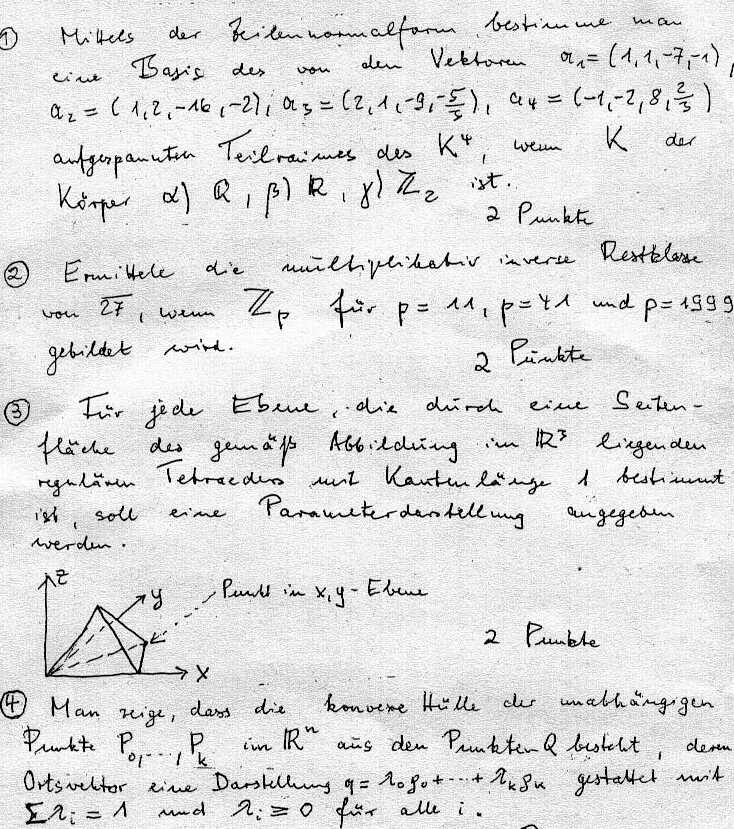 ① Mittels der Zeilennormalform bestimme man
eine Basis des von den Vektoren a₁ = (1,1,-7,-1),
a₂ = (1,2,-16,-2), a₃ = (2,1,-9,-5/3), a₄ = (-1,-2,8,2/3)
aufgespannten Teilraumes des K⁴, wenn K der
Körper α) Q, β) R, γ) Z₂ ist.
2 Punkte
② Ermittele die multiplikativ inverse Restklasse
von 2̅7̅, wenn Zₚ für p = 11, p = 41 und p = 1999
gebildet wird.
2 Punkte
③ Für jede Ebene, die durch eine Seiten-
fläche des gemäß Abbildung im R³ liegenden
regulären Tetraeders mit Kantenlänge 1 bestimmt
ist, soll eine Parameterdarstellung angegeben
werden.
z
y
Punkt in x,y-Ebene
x
2 Punkte
④ Man zeige, dass die konvexe Hülle der unabhängigen
Punkte P₀,...,Pₖ im Rⁿ aus den Punkten Q besteht, deren
Ortsvektor eine Darstellung q = λ₀p₀ + ... + λₖpₖ gestattet mit
Σλᵢ = 1 und λᵢ ≥ 0 für alle i.